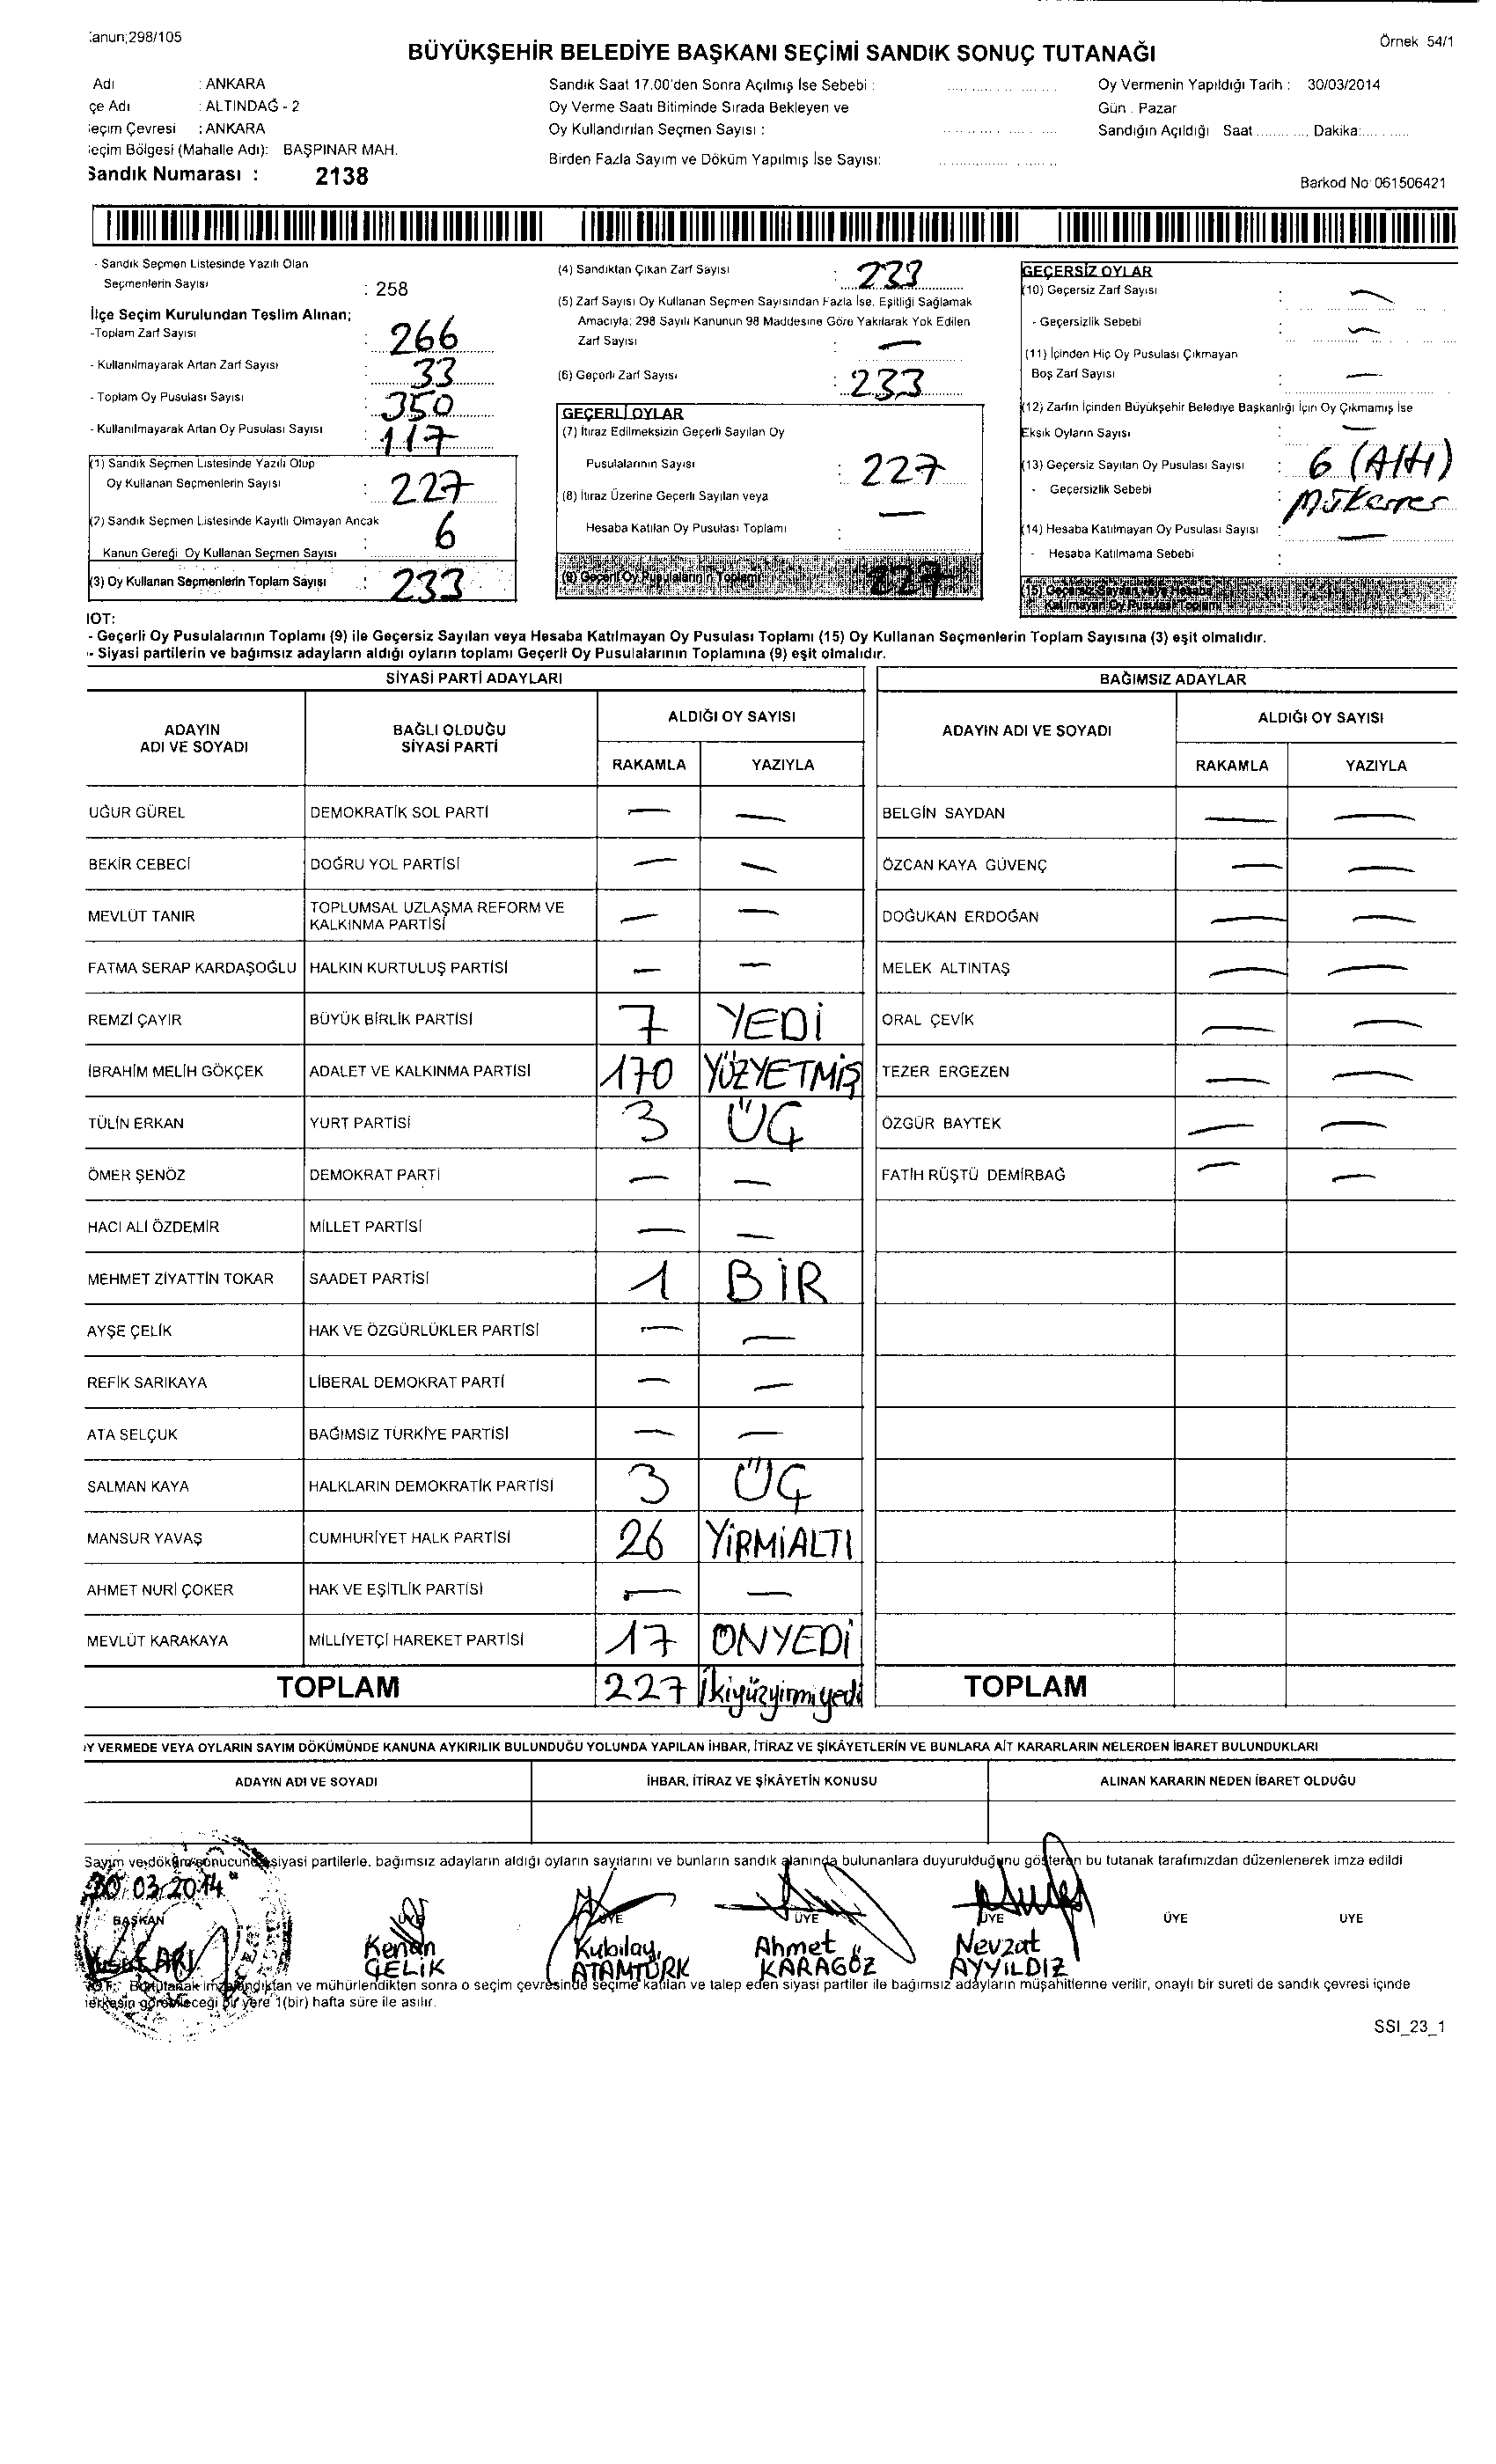 anun;298/105
Örnek 54/1
BÜYÜKŞEHİR BELEDİYE BAŞKANI SEÇİMİ SANDIK SONUÇ TUTANAĞI
Adı : ANKARA
çe Adı : ALTINDAĞ - 2
eçim Çevresi : ANKARA
eçim Bölgesi (Mahalle Adı): BAŞPINAR MAH.
Sandık Numarası : 2138
Sandık Saat 17.00'den Sonra Açılmış İse Sebebi :
Oy Verme Saati Bitiminde Sırada Bekleyen ve
Oy Kullandırılan Seçmen Sayısı :
Birden Fazla Sayım ve Döküm Yapılmış İse Sayısı:
Oy Vermenin Yapıldığı Tarih : 30/03/2014
Gün . Pazar
Sandığın Açıldığı Saat ............, Dakika:............
Barkod No: 061506421
- Sandık Seçmen Listesinde Yazılı Olan
Seçmenlerin Sayısı : 258
İlçe Seçim Kurulundan Teslim Alınan;
-Toplam Zarf Sayısı : 266
- Kullanılmayarak Artan Zarf Sayısı : 33
- Toplam Oy Pusulası Sayısı : 350
- Kullanılmayarak Artan Oy Pusulası Sayısı : 117
(1) Sandık Seçmen Listesinde Yazılı Olup
Oy Kullanan Seçmenlerin Sayısı : 227
(2) Sandık Seçmen Listesinde Kayıtlı Olmayan Ancak
Kanun Gereği Oy Kullanan Seçmen Sayısı : 6
(3) Oy Kullanan Seçmenlerin Toplam Sayısı : 233
(4) Sandıktan Çıkan Zarf Sayısı : 233
(5) Zarf Sayısı Oy Kullanan Seçmen Sayısından Fazla İse, Eşitliği Sağlamak
Amacıyla; 298 Sayılı Kanunun 98 Maddesine Göre Yakılarak Yok Edilen
Zarf Sayısı : —
(6) Geçerli Zarf Sayısı : 233
GEÇERLİ OYLAR
(7) İtiraz Edilmeksizin Geçerli Sayılan Oy
Pusulalarının Sayısı : 227
(8) İtiraz Üzerine Geçerli Sayılan veya
Hesaba Katılan Oy Pusulası Toplamı : —
(9) Geçerli Oy Pusulalarının Toplamı 227
GEÇERSİZ OYLAR
(10) Geçersiz Zarf Sayısı : —
- Geçersizlik Sebebi : —
(11) İçinden Hiç Oy Pusulası Çıkmayan
Boş Zarf Sayısı : —
(12) Zarfın İçinden Büyükşehir Belediye Başkanlığı İçin Oy Çıkmamış İse
Eksik Oyların Sayısı : —
(13) Geçersiz Sayılan Oy Pusulası Sayısı : 6 (Altı)
- Geçersizlik Sebebi : Mükerrer
(14) Hesaba Katılmayan Oy Pusulası Sayısı : —
- Hesaba Katılmama Sebebi :
(15) Geçersiz Sayılan veya Hesaba
Katılmayan Oy Pusulası Toplamı
NOT:
- Geçerli Oy Pusulalarının Toplamı (9) ile Geçersiz Sayılan veya Hesaba Katılmayan Oy Pusulası Toplamı (15) Oy Kullanan Seçmenlerin Toplam Sayısına (3) eşit olmalıdır.
- Siyasi partilerin ve bağımsız adayların aldığı oyların toplamı Geçerli Oy Pusulalarının Toplamına (9) eşit olmalıdır.
SİYASİ PARTİ ADAYLARI
BAĞIMSIZ ADAYLAR
ADAYIN ADI VE SOYADI
BAĞLI OLDUĞU SİYASİ PARTİ
ALDIĞI OY SAYISI
RAKAMLA YAZIYLA
ADAYIN ADI VE SOYADI
ALDIĞI OY SAYISI
RAKAMLA YAZIYLA
UĞUR GÜREL DEMOKRATİK SOL PARTİ — — BELGİN SAYDAN — —
BEKİR CEBECİ DOĞRU YOL PARTİSİ — — ÖZCAN KAYA GÜVENÇ — —
MEVLÜT TANIR TOPLUMSAL UZLAŞMA REFORM VE KALKINMA PARTİSİ — — DOĞUKAN ERDOĞAN — —
FATMA SERAP KARDAŞOĞLU HALKIN KURTULUŞ PARTİSİ — — MELEK ALTINTAŞ — —
REMZİ ÇAYIR BÜYÜK BİRLİK PARTİSİ 7 YEDİ ORAL ÇEVİK — —
İBRAHİM MELİH GÖKÇEK ADALET VE KALKINMA PARTİSİ 170 YÜZYETMİŞ TEZER ERGEZEN — —
TÜLİN ERKAN YURT PARTİSİ 3 ÜÇ ÖZGÜR BAYTEK — —
ÖMER ŞENÖZ DEMOKRAT PARTİ — — FATİH RÜŞTÜ DEMİRBAĞ — —
HACI ALİ ÖZDEMİR MİLLET PARTİSİ — —
MEHMET ZİYATTİN TOKAR SAADET PARTİSİ 1 BİR
AYŞE ÇELİK HAK VE ÖZGÜRLÜKLER PARTİSİ — —
REFİK SARIKAYA LİBERAL DEMOKRAT PARTİ — —
ATA SELÇUK BAĞIMSIZ TÜRKİYE PARTİSİ — —
SALMAN KAYA HALKLARIN DEMOKRATİK PARTİSİ 3 ÜÇ
MANSUR YAVAŞ CUMHURİYET HALK PARTİSİ 26 YİRMİALTI
AHMET NURİ ÇOKER HAK VE EŞİTLİK PARTİSİ — —
MEVLÜT KARAKAYA MİLLİYETÇİ HAREKET PARTİSİ 17 ONYEDİ
TOPLAM 227 İkiyüzyirmiyedi TOPLAM
Y VERMEDE VEYA OYLARIN SAYIM DÖKÜMÜNDE KANUNA AYKIRILIK BULUNDUĞU YOLUNDA YAPILAN İHBAR, İTİRAZ VE ŞİKÂYETLERİN VE BUNLARA AİT KARARLARIN NELERDEN İBARET BULUNDUKLARI
ADAYIN ADI VE SOYADI İHBAR, İTİRAZ VE ŞİKÂYETİN KONUSU ALINAN KARARIN NEDEN İBARET OLDUĞU
Sayım ve döküm sonucunda siyasi partilerle, bağımsız adayların aldığı oyların sayılarını ve bunların sandık alanında bulunanlara duyurulduğunu gösteren bu tutanak tarafımızdan düzenlenerek imza edildi
30/03/2014
BAŞKAN ÜYE ÜYE ÜYE ÜYE ÜYE ÜYE
Kenan ÇELİK
Kubilay ATAMTÜRK
Ahmet KARAGÖZ
Nevzat AYYILDIZ
Bu tutanak imzalandıktan ve mühürlendikten sonra o seçim çevresinde seçime katılan ve talep eden siyasi partiler ile bağımsız adayların müşahitlerine verilir, onaylı bir sureti de sandık çevresi içinde
herkesin görebileceği bir yere 1(bir) hafta süre ile asılır.
SSI_23_1